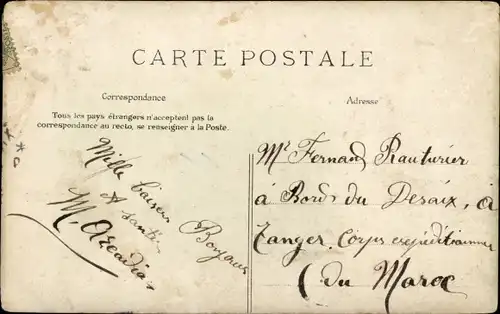 CARTE POSTALE
Correspondance
Tous les pays étrangers n'acceptent pas la
correspondance au recto, se renseigner à la Poste.
Mille baisers
et santé
Bonjour
Adresse
Mr Fernand Rauturier
à Bord du Desaix, a
Tanger. Corps expéditionnaire
(du Maroc